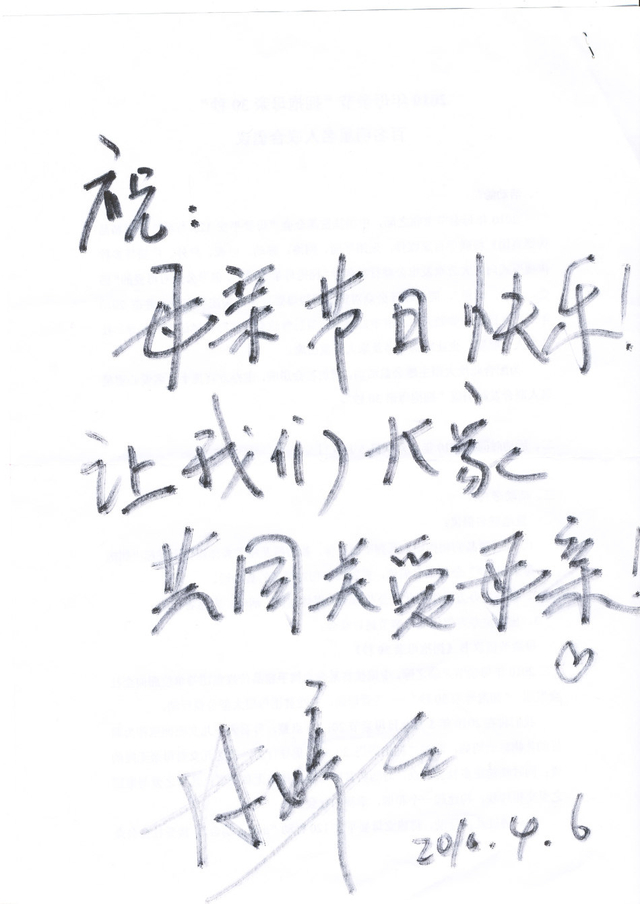 祝:
母亲节日快乐!
让我们大家
共同关爱母亲!
2010.4.6